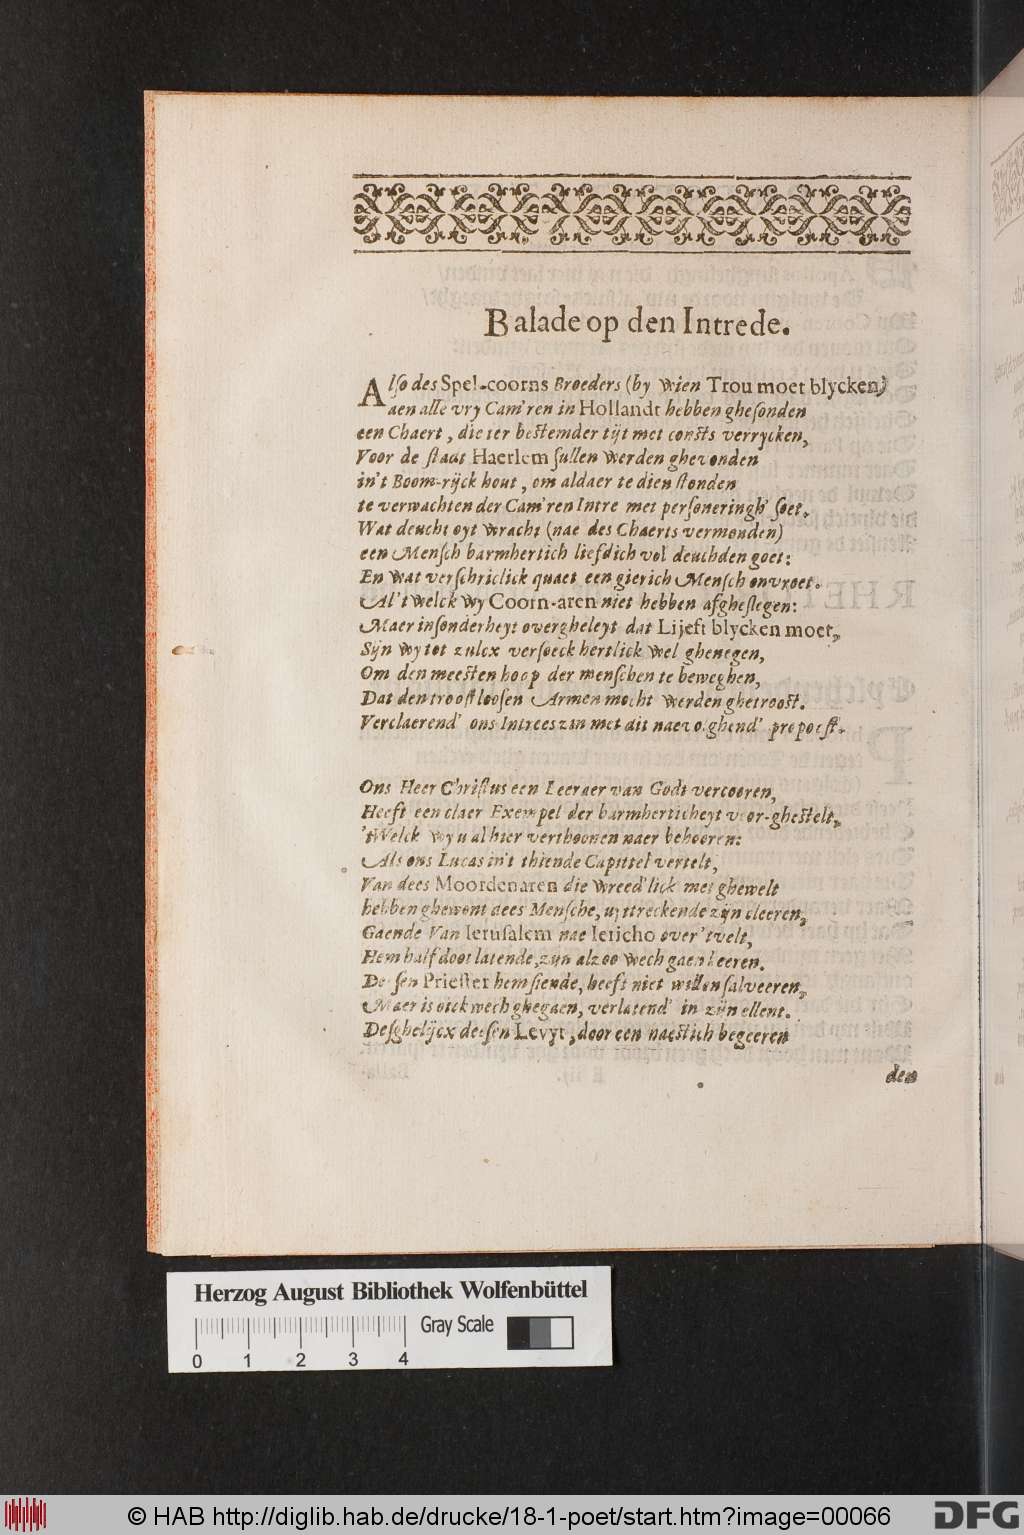 Balade op den Intrede.
Alſo des Spel-coorns Broeders (by wien Trou moet blycken)
aen alle vry Cam'ren in Hollandt hebben gheſonden
een Chaert, die ter beſtemder tijt met conſts verrycken,
Voor de ſtadt Haerlem ſullen werden ghevonden
in't Boom-rijck hout, om aldaer te dien ſtonden
te verwachten der Cam'ren Intre met perſoneringh' ſoet.
Wat deucht oyt wracht (nae des Chaerts vermonden)
een Menſch barmhertich liefdich vol deuchden goet:
En wat verſchriclick quaet een gierich Menſch onvroet.
Al't welck wy Coorn-aren niet hebben afgheſlegen:
Maer inſonderheyt overgheleyt dat Lijeft blycken moet,
Sijn wy tot zulcx verſoeck hertlick wel ghenegen,
Om den meeſten hoop der menſchen te beweghen,
Dat den trooſtlooſen Armen mocht werden ghetrooſt.
Verclaerend' ons Intrees zin met dit naevolghend' propooſt.
Ons Heer Chriſtus een Leeraer van Godt vercoren,
Heeft een claer Exempel der barmherticheyt voor-gheſtelt,
'tWelck wy u alhier verthoonen naer behooren:
Als ons Lucas in't thiende Capittel vertelt,
Van dees Moordenaren die wreed'lick met ghewelt
hebben ghewont dees Menſche, uyttreckende zijn cleeren,
Gaende Van Ieruſalem nae Iericho over'tvelt,
Hem half doot latende, zijn alzoo wech gaen keeren.
Deſen Prieſter hem ſiende, heeft niet willen ſalveeren,
Maer is oick wech ghegaen, verlatend' in zijn ellent.
Deſghelijcx deeſen Levyt, door een naeſtich begeeren
den
Herzog August Bibliothek Wolfenbüttel
Gray Scale
0 1 2 3 4
© HAB http://diglib.hab.de/drucke/18-1-poet/start.htm?image=00066
DFG